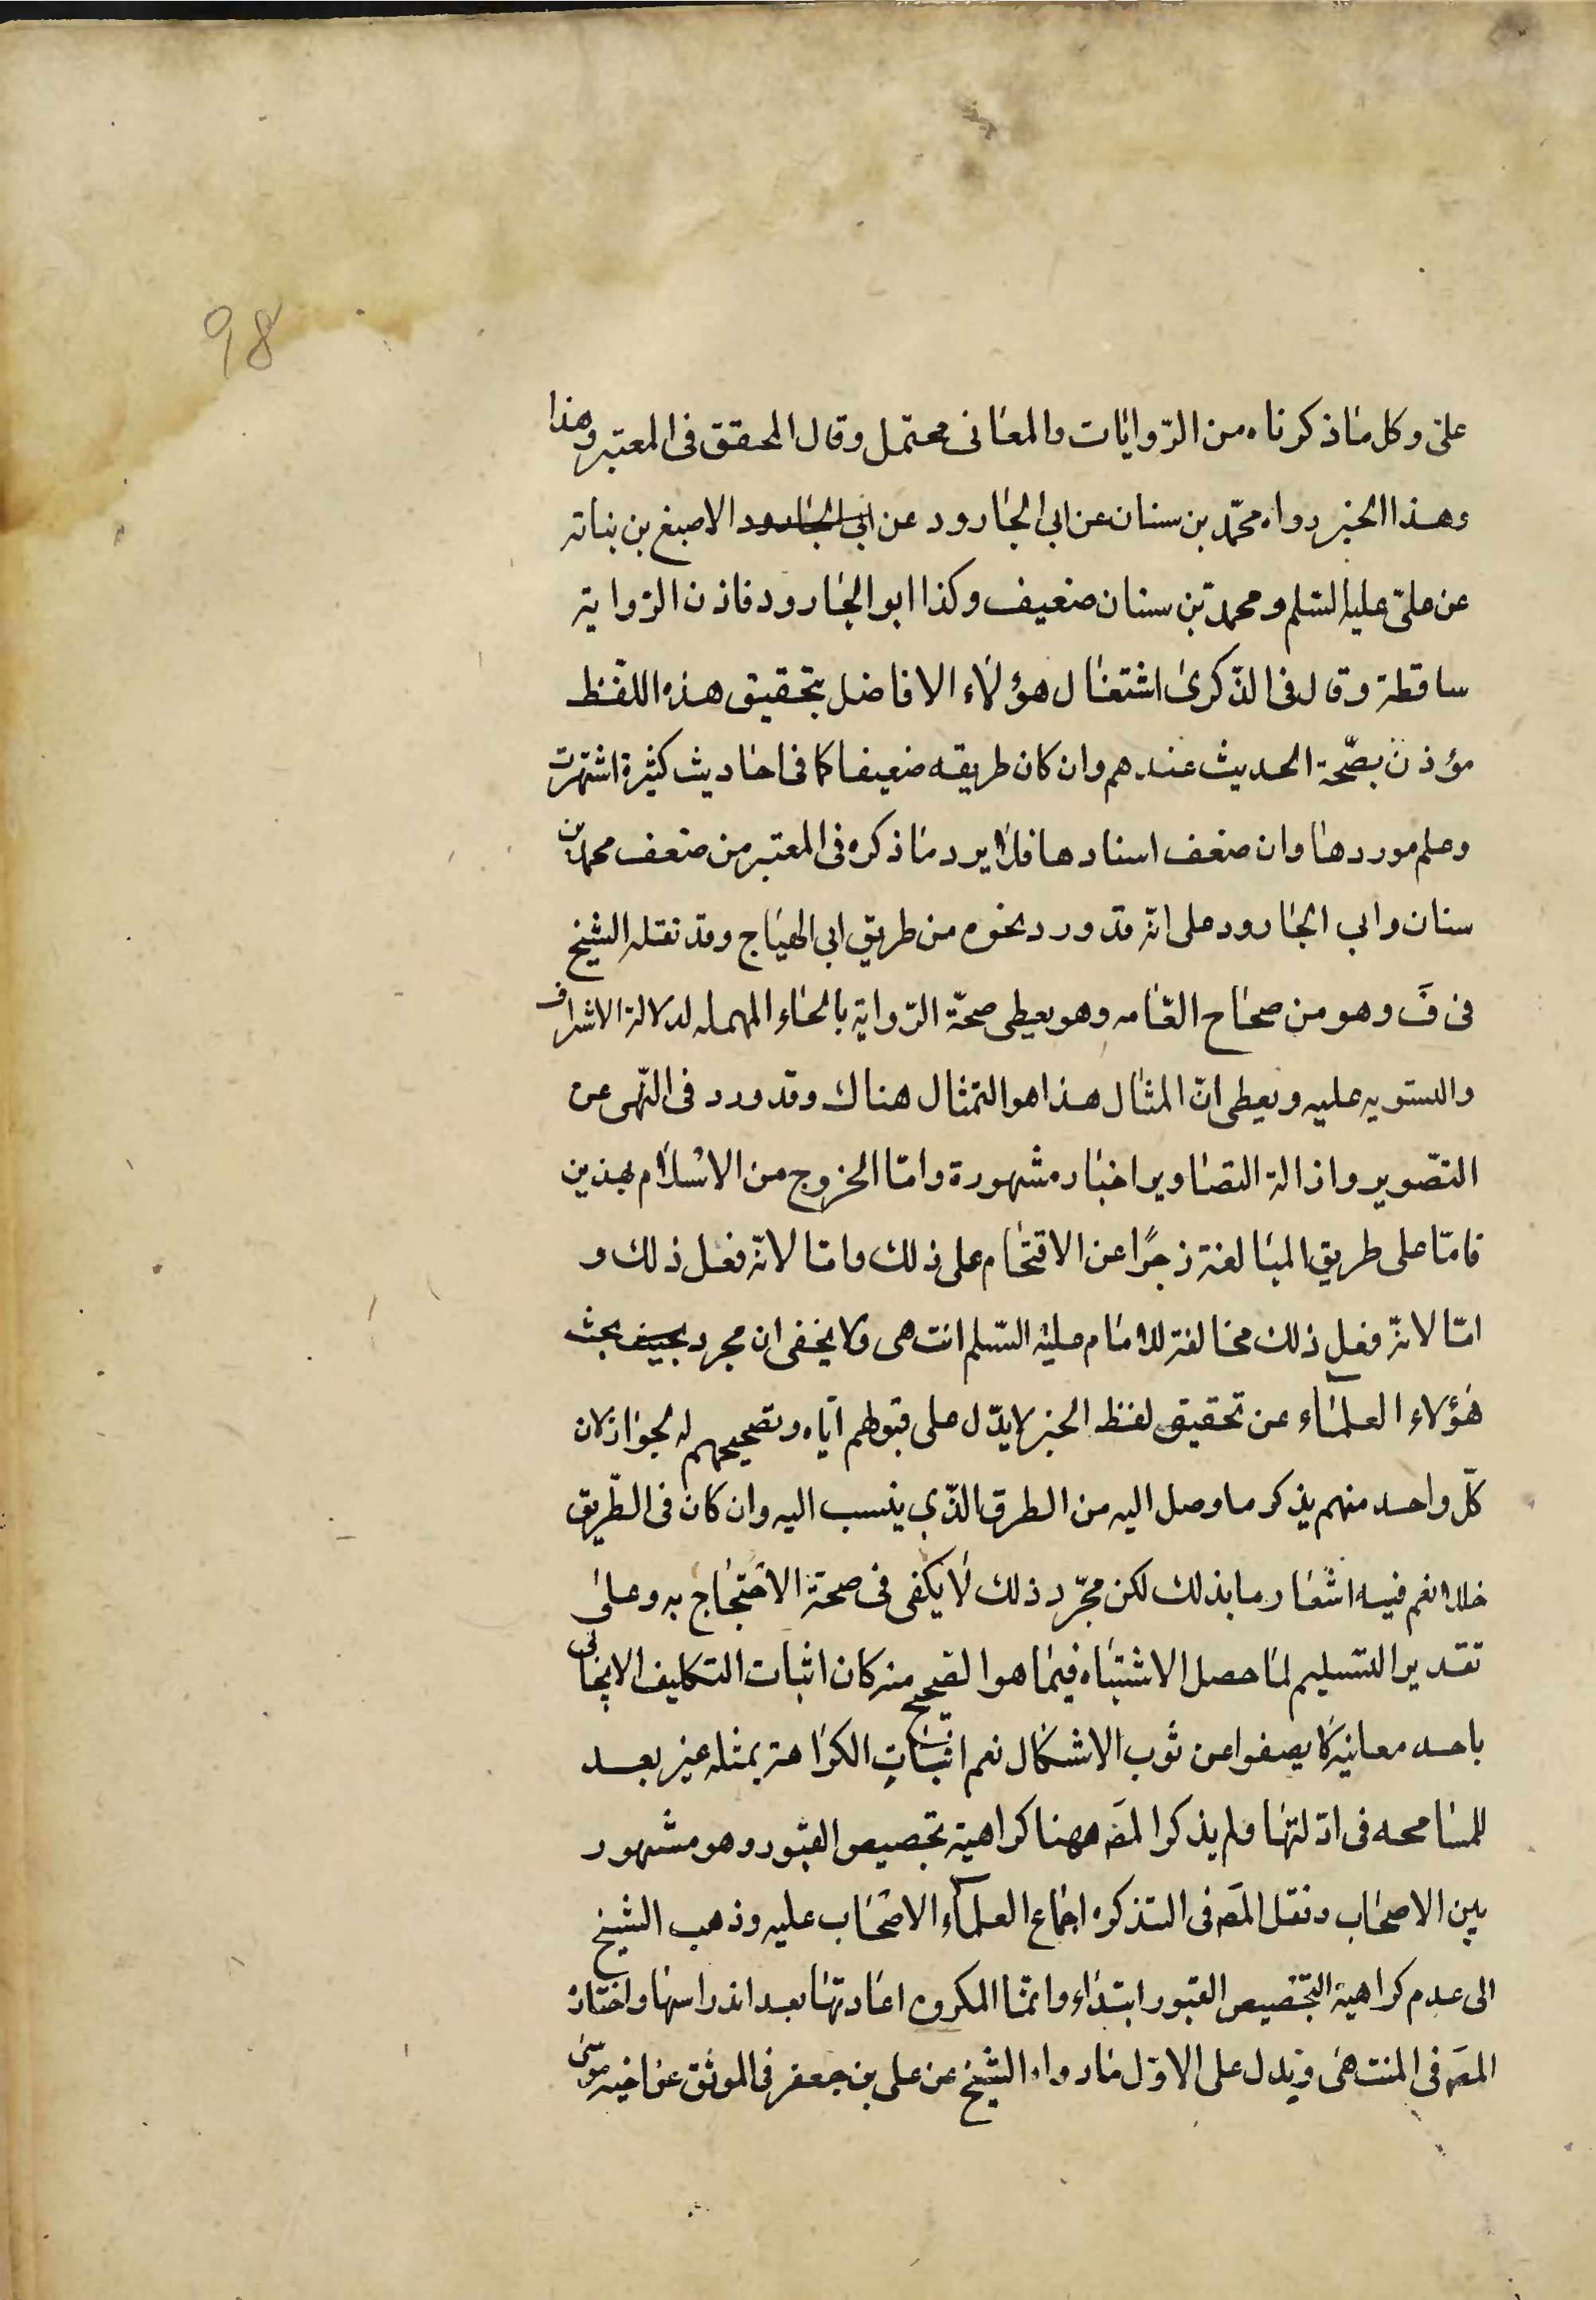 98
على وكل ما ذكرناه من الروايات والمعانى محتمل وقال المحقق فى المعتبر وهذا
وهذا الخبر رواه محمّد بن سنان عن ابى الجارود عن ابى الجارود الاصبغ بن نباته
عن علىّ عليه السّلم ومحمد بن سنان ضعيف وكذا ابو الجارود فاذن الرّواية
ساقطة وقال فى الذّكرىٰ اشتغال هؤلاء الافاضل بتحقيق هذه اللفظ
مؤذن بصّحة الحديث عندهم وان كان طريقه ضعيفا كما فى احاديث كثيرة اشتهرت
وعلم موردها وان ضعف اسنادها فلا يرد ما ذكره فى المعتبر من ضعف محمد بن
سنان وابى الجارود على انّه قد ورد نحوه من طريق ابى الهياج وقد نقله الشيخ
فى فَ وهو من صحاح العّامه وهو يعطى صحّة الرّواية بالحاء المهمله لدلالة الاشراف
والتسويه عليه ويعطى انّ المثال هذا هو التمثال هناك وقد ورد فى النّهى عن
التصّوير وازالة التصاوير اخبار مشهورة وامّا الخروج من الاسلام بهذين
فامّا على طريق المبالغة زجرًا عن الاقتحام على ذلك وامّا لانّه فعل ذلك و
امّا لانّه فعل ذلك مخالفة للامام عليه السّلم انتهى ولا يخفى ان مجرد بحيف بحث
هؤلاء العلماء عن تحقيق لفظ الخبر لا يدّل على قبولهم ايّاه وتصحيحهم له لجواز كان
كلّ واحد منهم يذكر ما وصل اليه من الطرق الذّى ينسب اليه وان كان فى الطّريق
خلل نعم فيه اشعار ما بذلك لكن مجّرد ذلك لا يكفى فى صحة الاحتجاج به وعلى
تقدير التسليم لما حصل الاشتباه فيما هو الصحيح منه كان اثبات التكليف الايجابى
باحد معانيه لا يصفوا عن ثوب الاشكال نعم اثبات الكراهة بمثله غير بعيد
للمسامحه فى ادّلتها ولم يذكر المصَ ههنا كراهية تجصيص القبور وهو مشهور
بين الاصحاب ونقل المصَ فى التذكره اجماع العلماء الاصحاب عليه وذهب الشيخ
الى عدم كراهية التجصيص القبور ابتداء وانّما المكروه اعادتها بعد اندراسها واختاره
المصَ فى المنتهى ويدل على الاوّل ما رواه الشيخ عن على بن جعفر فى الموثق عن اخيه موسى